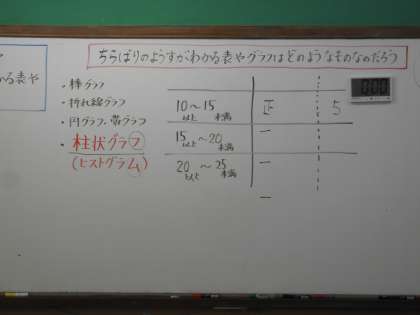 かる表や
ちらばりのようすがわかる表やグラフはどのようなものなのだろう
・棒グラフ
・折れ線グラフ
・円グラフ・帯グラフ
・柱状グラフ
(ヒストグラム)
10以上～15未満 正 5
15以上～20未満 一
20以上～25未満 一
一
0:00